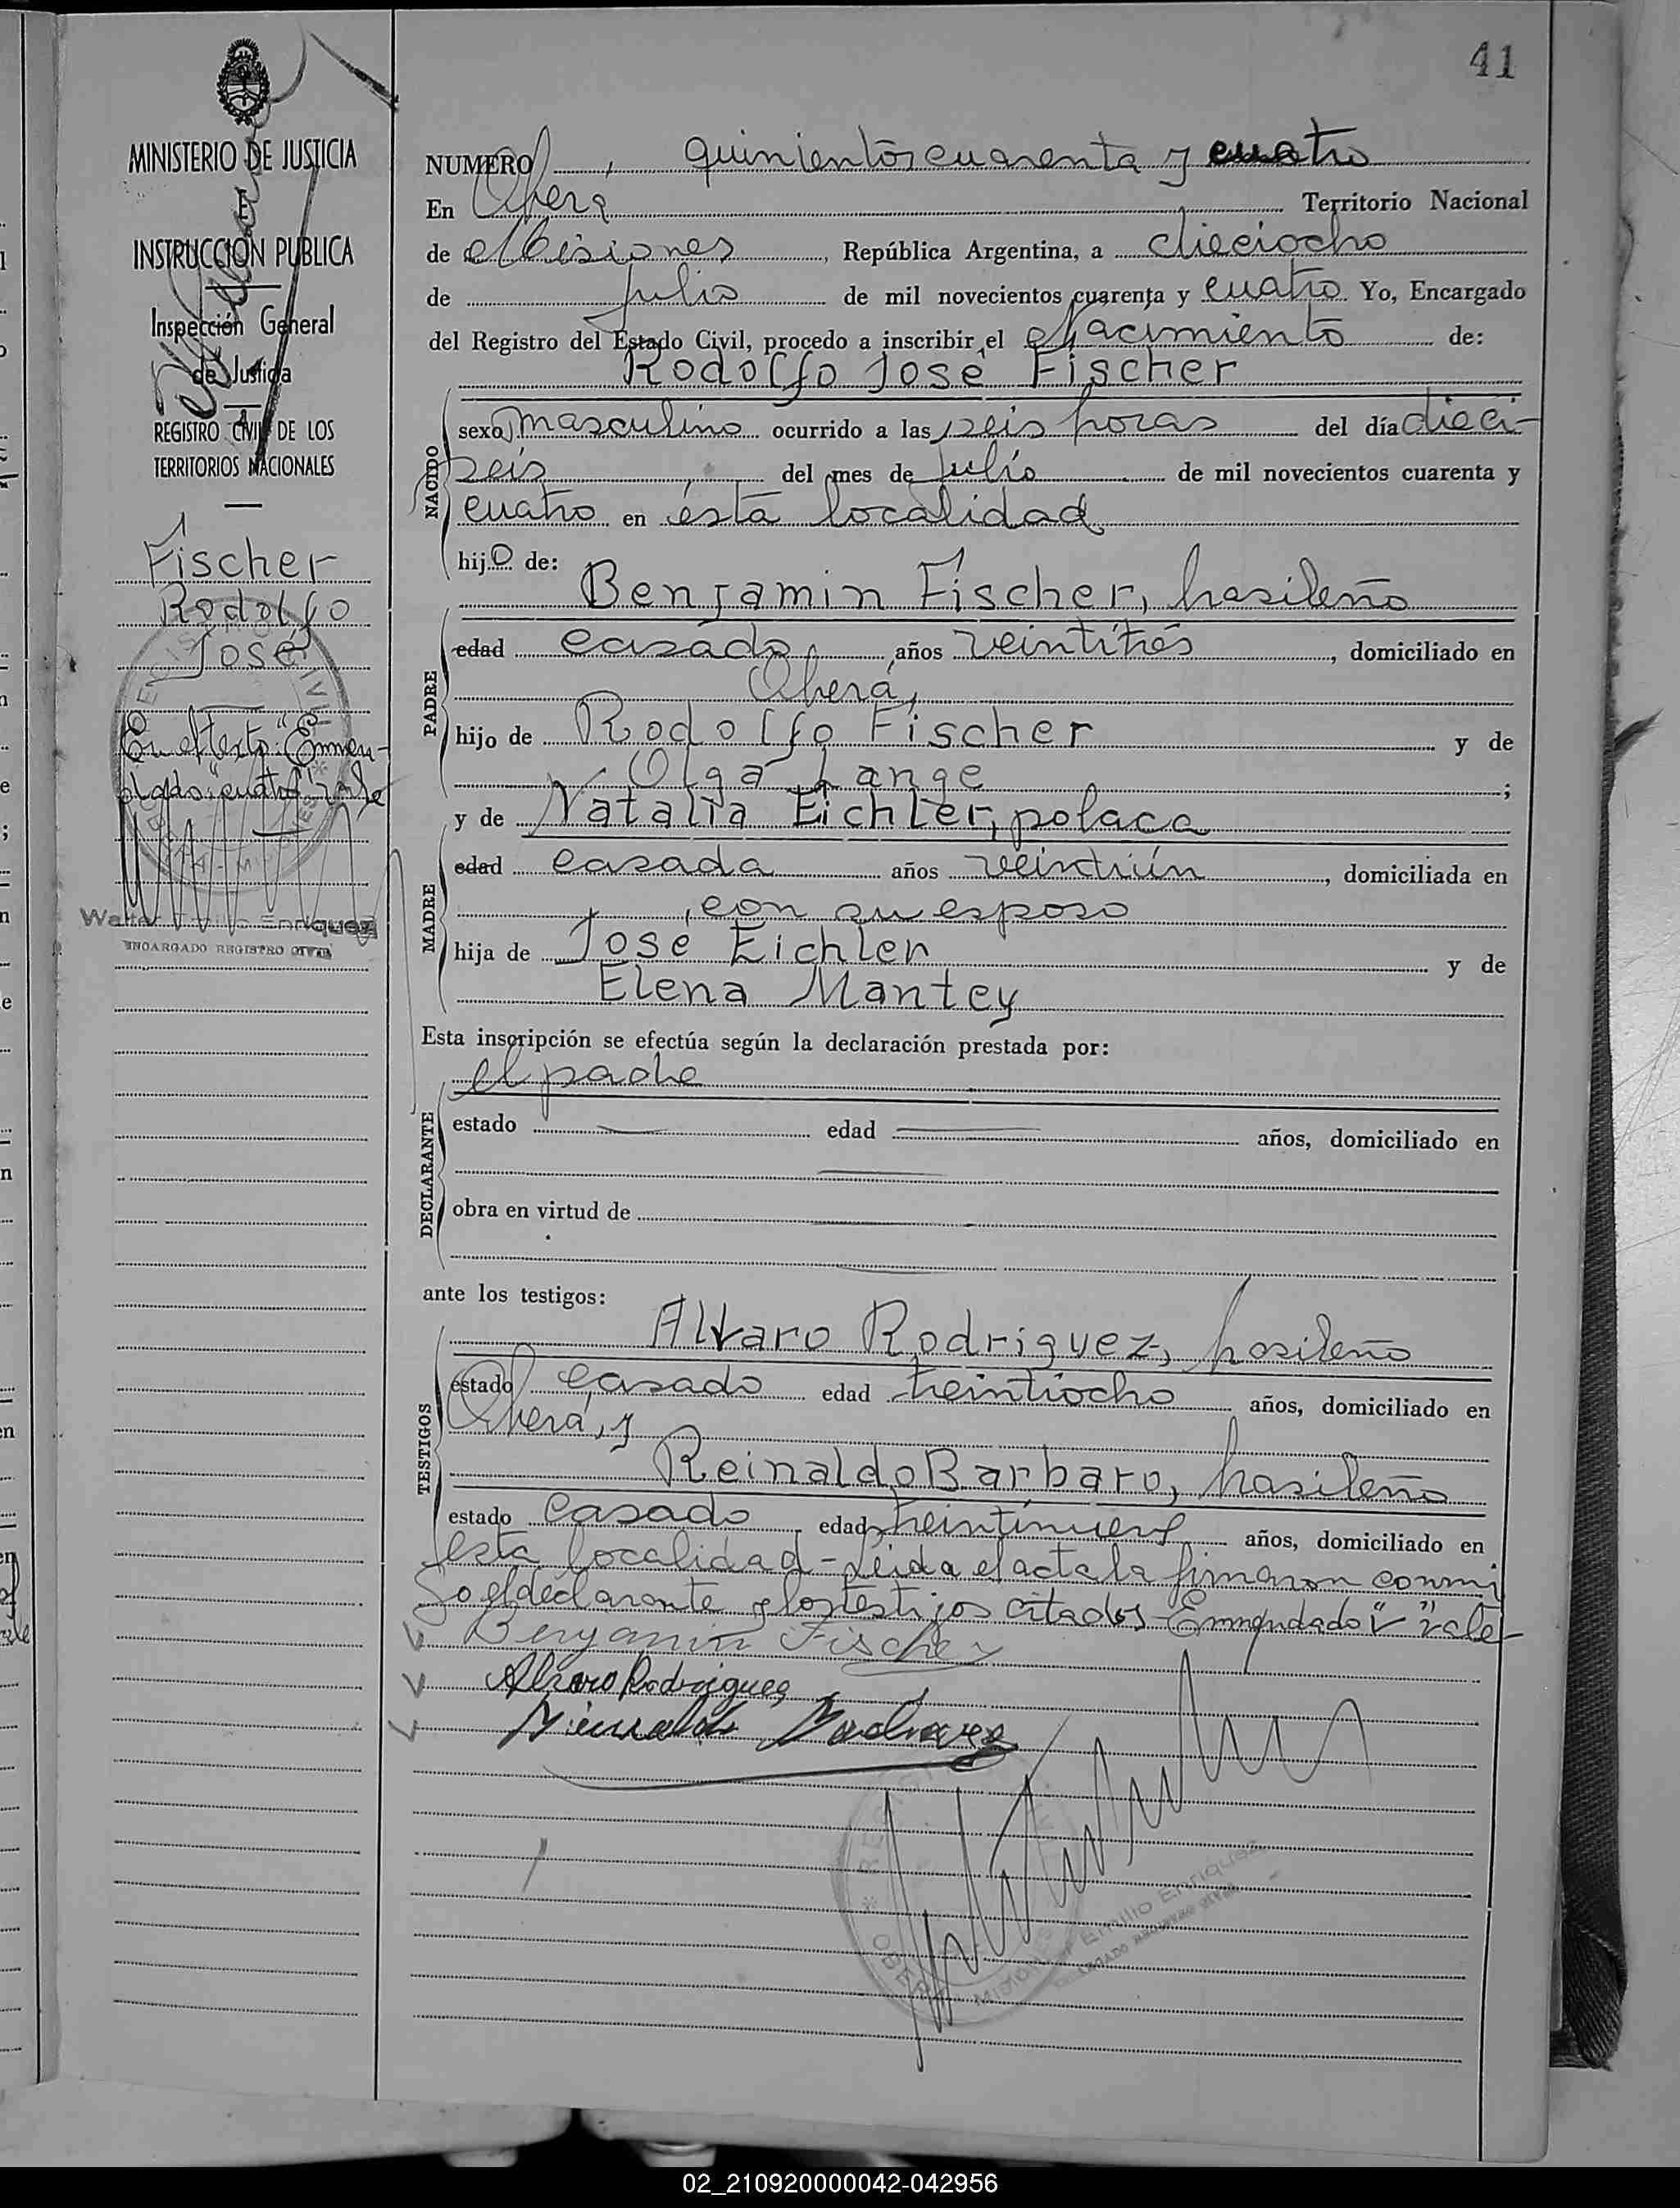 41
MINISTERIO DE JUSTICIA
E
INSTRUCCIÓN PUBLICA
Inspección General
de Justicia
REGISTRO CIVIL DE LOS
TERRITORIOS NACIONALES
Fischer
Rodolfo
José
En el texto: "Enmen-
dado "cuatro" vale
Walter Emilio Enriquez
ENCARGADO REGISTRO CIVIL
NUMERO quinientos cuarenta y cuatro
En Oberá, Territorio Nacional
de Misiones, República Argentina, a dieciocho
de Julio de mil novecientos cuarenta y cuatro Yo, Encargado
del Registro del Estado Civil, procedo a inscribir el Nacimiento de:
Rodolfo José Fischer
NACIDO
sexo masculino ocurrido a las seis horas del día dieci-
seis del mes de Julio de mil novecientos cuarenta y
cuatro en ésta localidad
hijo de:
Benjamin Fischer, brasileño
PADRE
edad casado, años veintitrés, domiciliado en
Oberá,
hijo de Rodolfo Fischer y de
Olga Lange;
y de Natalia Eichler, polaca
MADRE
edad casada años veintiún, domiciliada en
con su esposo
hija de José Eichler y de
Elena Mantey
Esta inscripción se efectúa según la declaración prestada por:
el padre
DECLARANTE
estado edad años, domiciliado en
obra en virtud de
ante los testigos:
Alvaro Rodriguez, brasileño
TESTIGOS
estado casado edad treintiocho años, domiciliado en
Oberá, y
Reinaldo Barbaro, brasileño
estado casado edad treintinueve años, domiciliado en
esta localidad - Leida el acta la firmaron conmi
go el declarante y los testigos citados - Enmendado "v" vale-
Benjamin Fischer
Alvaro Rodrigues
REGISTRO
OBERA
MISIONES
Emilio Enriquez
ENCARGADO REGISTRO CIVIL
02_210920000042-042956